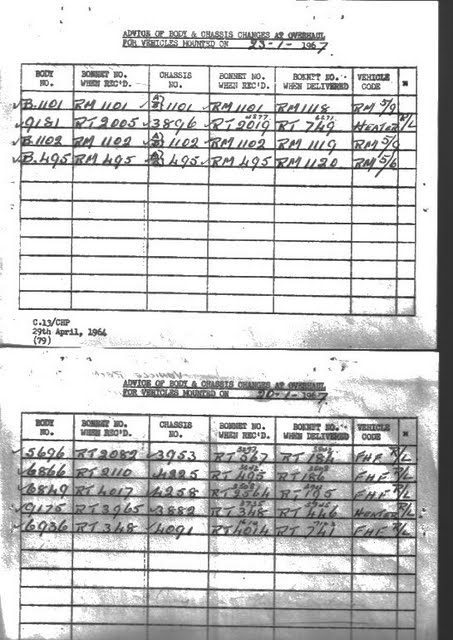 ADVICE OF BODY & CHASSIS CHANGES AT OVERHAUL
FOR VEHICLES MOUNTED ON 23-1-1967
BODY NO. BONNET NO. WHEN REC'D. CHASSIS NO. BONNET NO. WHEN REC'D. BONNET NO. WHEN DELIVERED VEHICLE CODE *
✓B.1101 RM 1101 ✓ 1101 ✓RM 1101 RM 1118 RM 5/9
✓9181 RT 2005 ✓3896 ✓RT 2019 RT 749 HEATER R/L
✓B.1102 RM 1102 ✓ 1102 ✓RM 1102 RM 1119 RM 5/9
✓B.495 RM 495 ✓ 495 ✓RM 495 RM 1120 RM 5/6
C.13/CHP
29th April, 1964
(79)
ADVICE OF BODY & CHASSIS CHANGES AT OVERHAUL
FOR VEHICLES MOUNTED ON 20-1-1967
BODY NO. BONNET NO. WHEN REC'D. CHASSIS NO. BONNET NO. WHEN REC'D. BONNET NO. WHEN DELIVERED VEHICLE CODE *
✓5696 RT 2082 ✓3953 RT 967 RT 184 FHF R/L
✓6866 RT 2110 ✓4225 RT 495 RT 186 FHF R/L
✓6849 RT 4017 ✓4258 RT 2564 RT 195 FHF R/L
✓9175 RT 3965 ✓3882 RT 348 RT 446 HEATER R/L
✓6936 RT 348 ✓4091 RT 4014 RT 741 FHF R/L